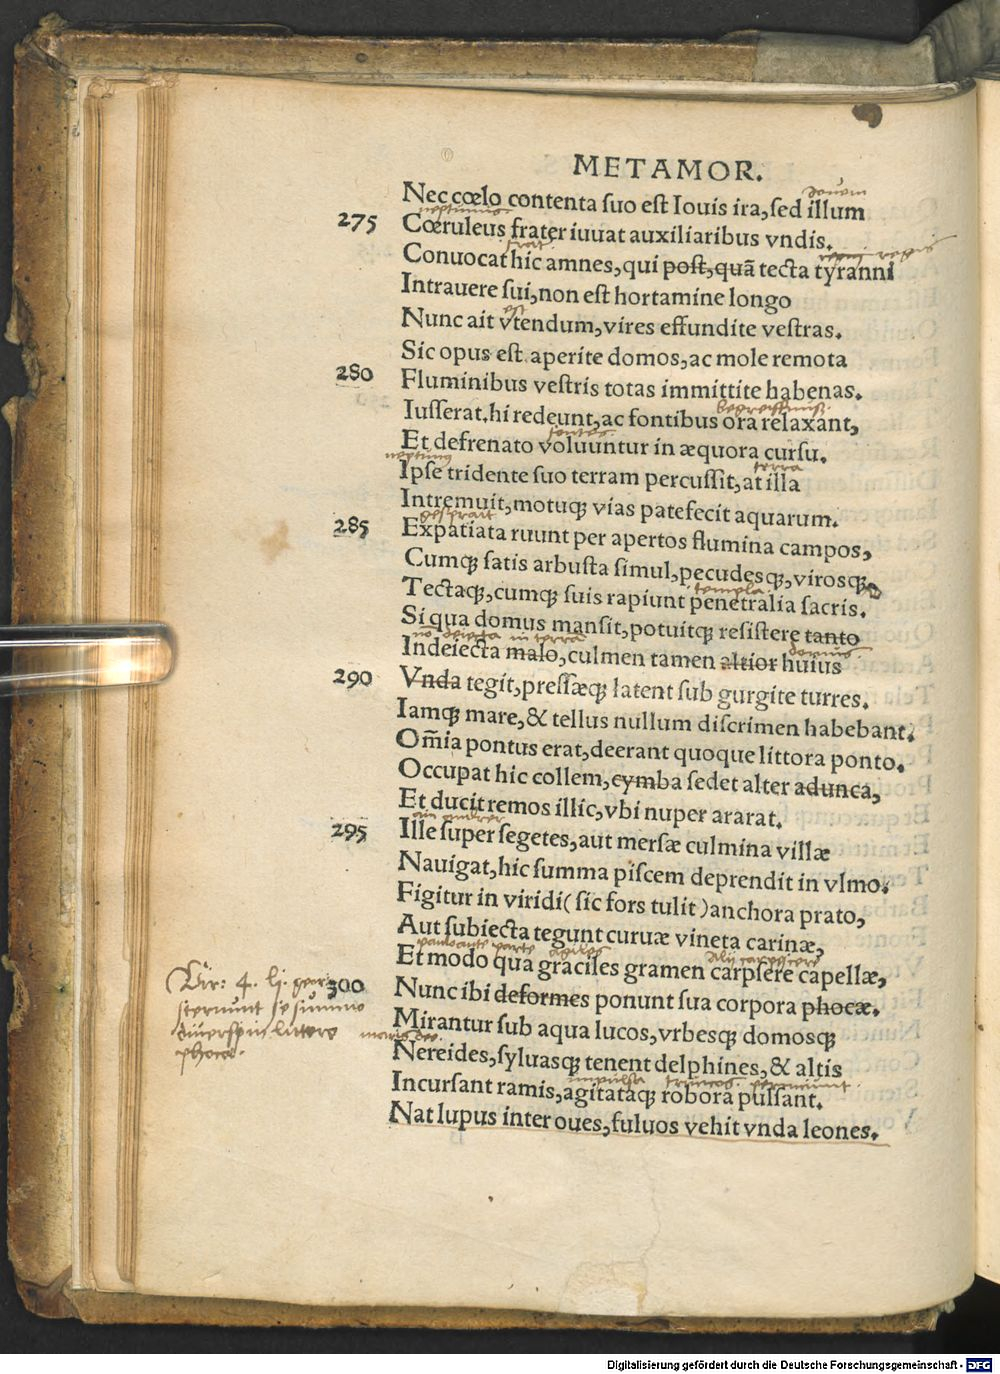 METAMOR.
Jouem
Nec cœlo contenta suo est Iouis ira, sed illum
neptunus
275 Cœruleus frater iuuat auxiliaribus vndis.
Conuocat hic amnes, qui post, quã tecta tyranni
regis
Intrauere sui, non est hortamine longo
Nunc ait vtendum, vires effundite vestras.
est
Sic opus est aperite domos, ac mole remota
280 Fluminibus vestris totas immittite habenas.
Iusserat. hi redeunt, ac fontibus ora relaxant,
Et defrenato voluuntur in æquora cursu.
fontes
neptunus
terra
Ipse tridente suo terram percussit, at illa
Intremuit, motuqȝ vias patefecit aquarum.
285 Expatiata ruunt per apertos flumina campos,
Cumqȝ satis arbusta simul, pecudesqȝ, virosqȝ
Tectaqȝ, cumqȝ suis rapiunt penetralia sacris.
templa
Si qua domus mansit, potuitqȝ resistere tanto
no deiecta in terra
domus
Indeiecta malo, culmen tamen altior huius
290 Vnda tegit, pressæqȝ latent sub gurgite turres.
Iamqȝ mare, & tellus nullum discrimen habebant.
Om̃ia pontus erat, deerant quoque littora ponto.
Occupat hic collem, cymba sedet alter adunca,
Et ducit remos illic, vbi nuper ararat.
295 Ille super segetes, aut mersæ culmina villæ
Nauigat, hic summa piscem deprendit in vlmo.
Figitur in viridi (sic fors tulit) anchora prato,
Aut subiecta tegunt curuæ vineta carinæ,
paulo ante parte agiles
Et modo qua graciles gramen carpsere capellæ,
300 Nunc ibi deformes ponunt sua corpora phocæ.
Vir: 4. li. geor
sternunt se somno
diuersæ in littore
phocæ.
Mirantur sub aqua lucos, vrbesqȝ domosqȝ
maris deæ
Nereides, syluasqȝ tenent delphines, & altis
impulsa
Incursant ramis, agitataqȝ robora pulsant.
Nat lupus inter oues, fuluos vehit vnda leones.
Digitalisierung gefördert durch die Deutsche Forschungsgemeinschaft - DFG